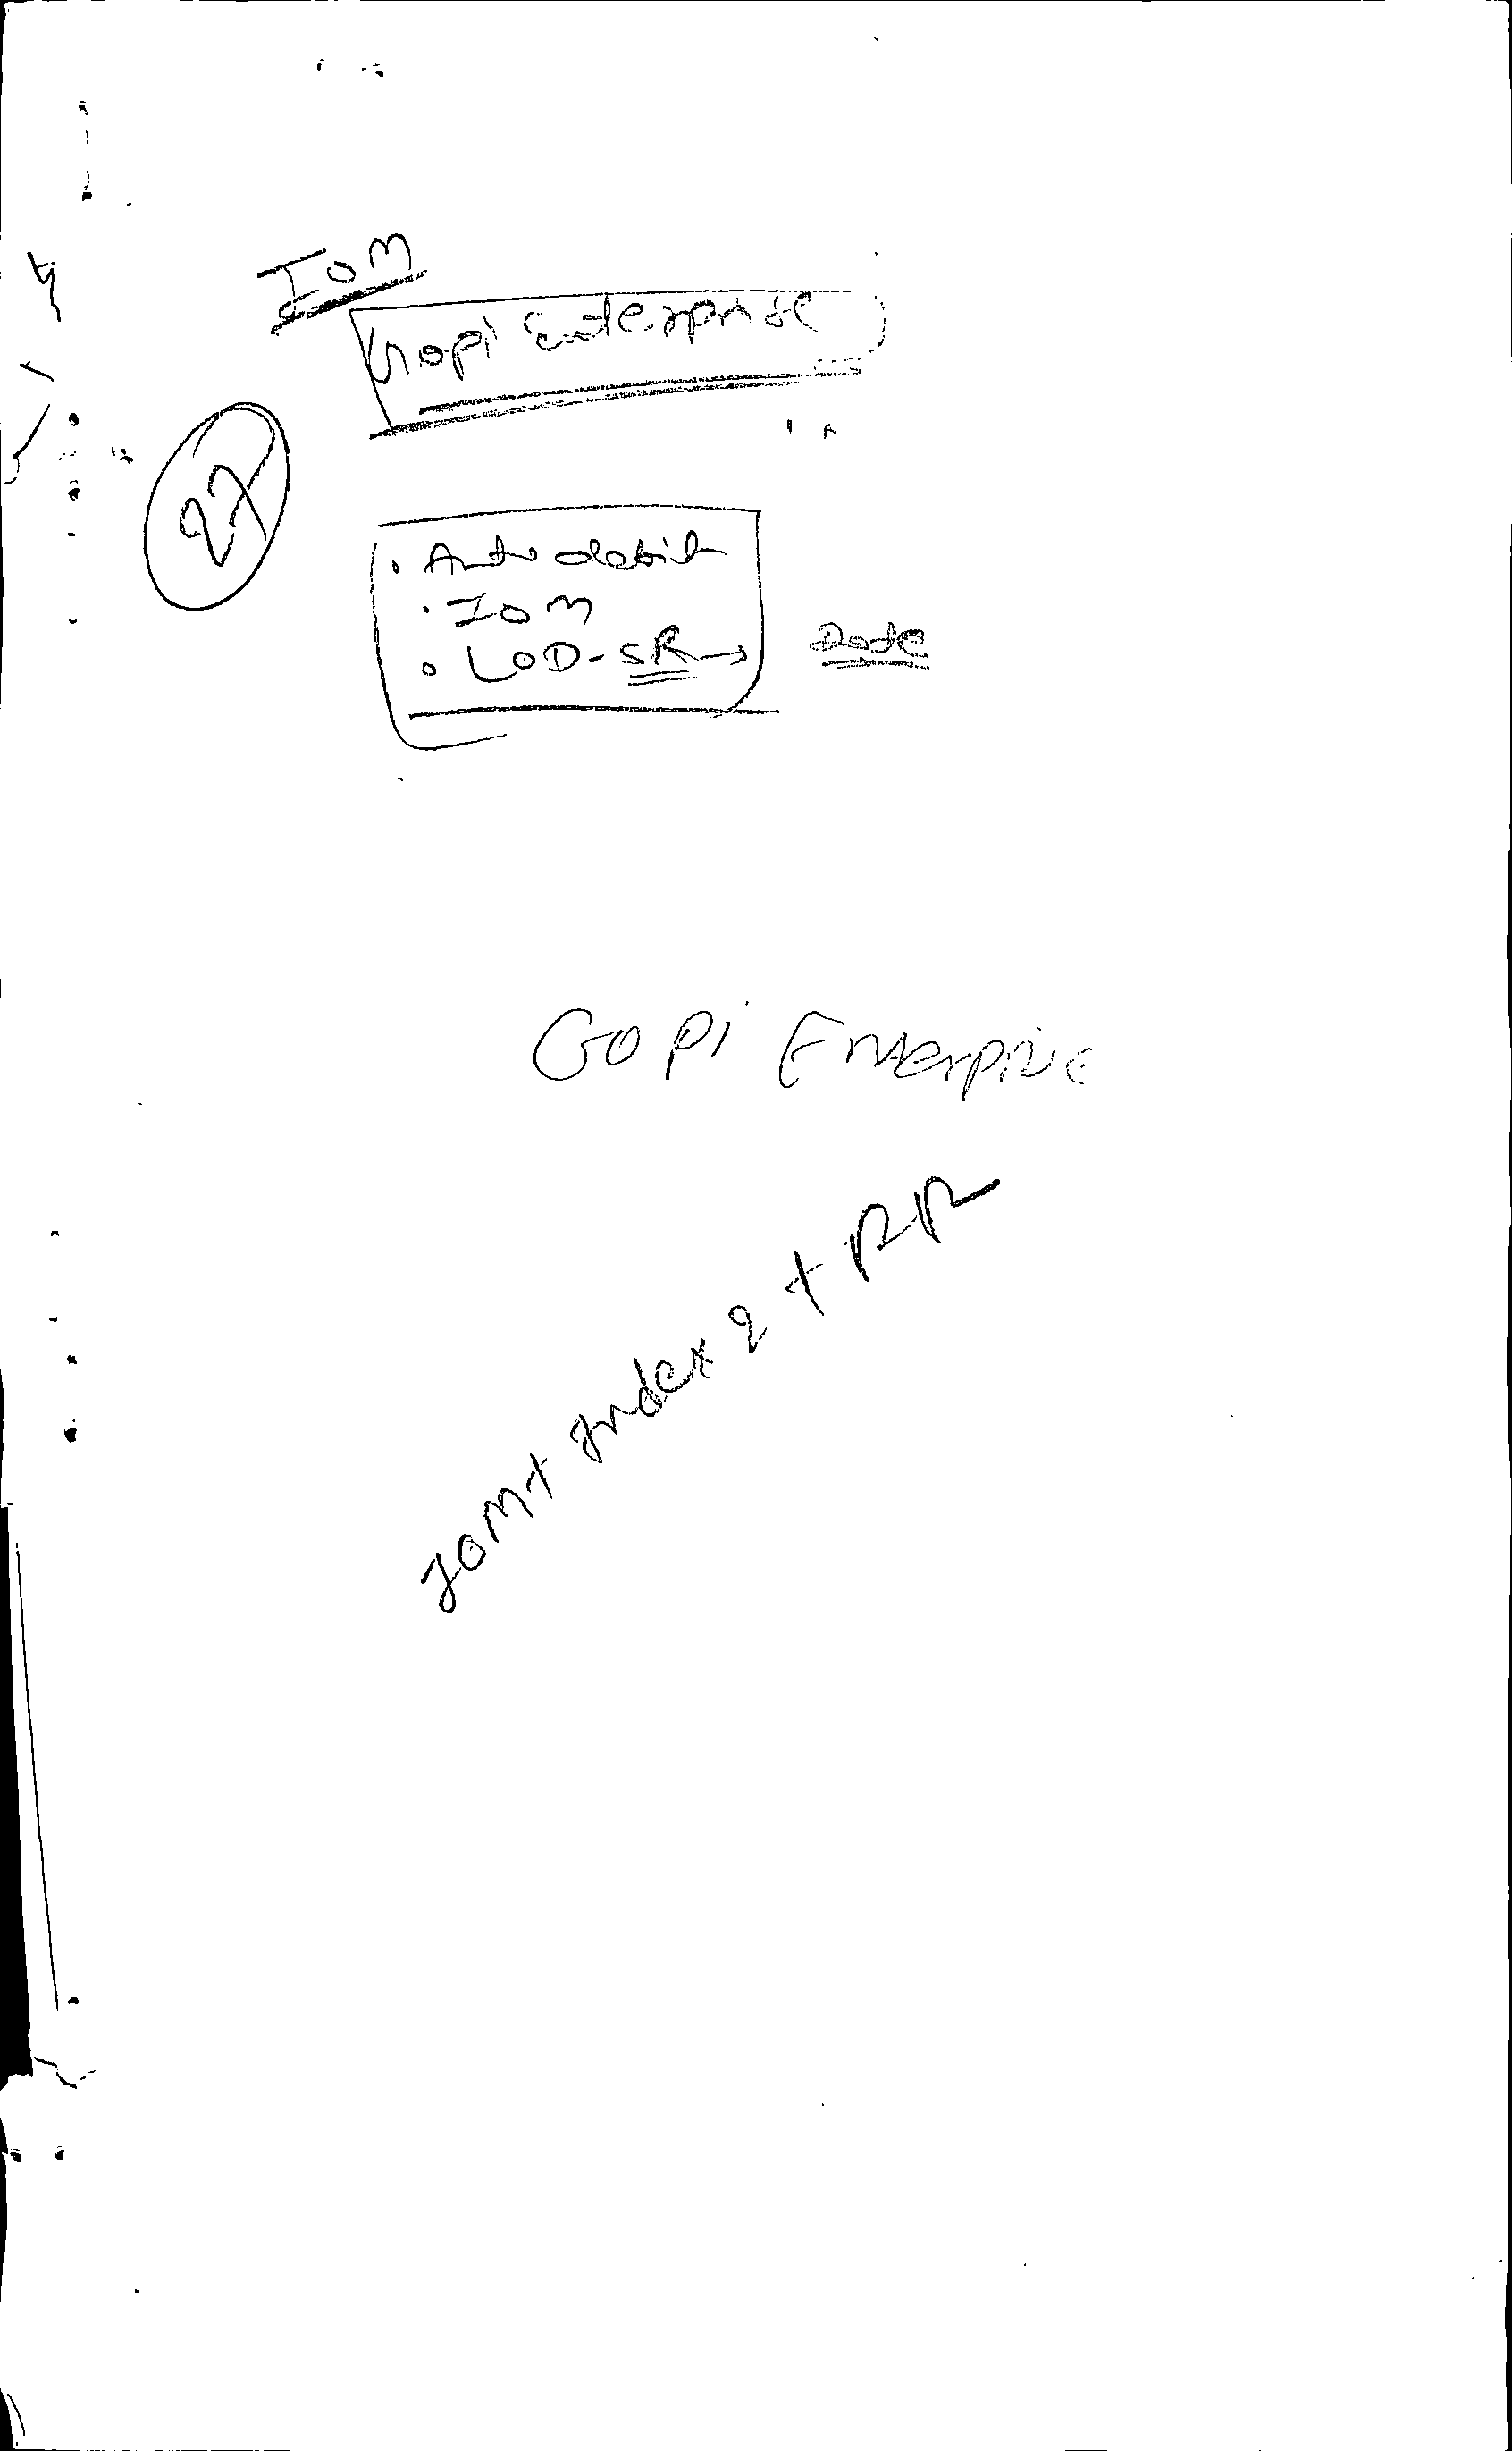 IOM
Gopi Enterprise
27
• Auto debit
• IOM
• LOD - SR → Date
Gopi Enterprise
IOM + Index 2 + RR